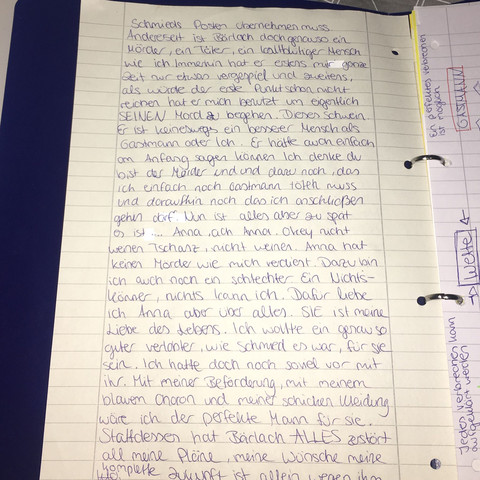 Schmieds Posten übernehmen muss.
Andererseit ist Bärlach doch genauso ein
Mörder, ein Täter, ein kaltblütiger Mensch
wie ich Immerhin hat er erstens mir ganze
Zeit nur etwas vergespiel und zweitens,
als würde der erste Punkt schon nicht
reichen hat er mich benutzt um eigentlich
SEINEN Mord zu begehen. Dieses Schwein.
Er ist keineswegs ein besserer Mensch als
Gastmann oder Ich. Er hätte auch einfach
am Anfang sagen können Ich denke du
bist der Mörder und und dazu noch, das
ich einfach noch Gastmann töten muss
und daraufhin noch das ich anschließen
gehen darf. Nun ist alles aber zu spät
es ist .... Anna, ach Anna. Okey nicht
weinen Tschanz, nicht weinen. Anna hat
keinen Mörder wie mich verdient. Dazu bin
ich auch noch ein schlechter Ein Nichts-
könner, nichts kann ich. Dafür liebe
ich Anna aber über alles. SIE ist meine
Liebe des Lebens. Ich wollte ein genau so
guter verlobter, wie Schmied es war, für sie
sein. Ich hatte doch noch soviel vor mit
ihr. Mit meiner Beförderung, mit meinem
blauen Charon und meiner schicken Kleidung
wäre ich der perfekte Mann für sie.
Stattdessen hat Bärlach ALLES zerstört
all meine Pläne, meine Wünsche meine
komplette Zukunft ist allein wegen ihm
Ein perfektes verbrechen
ist möglich
GASTMANN
Wette
Jedes verbrechen kann
aufgeklärt werden